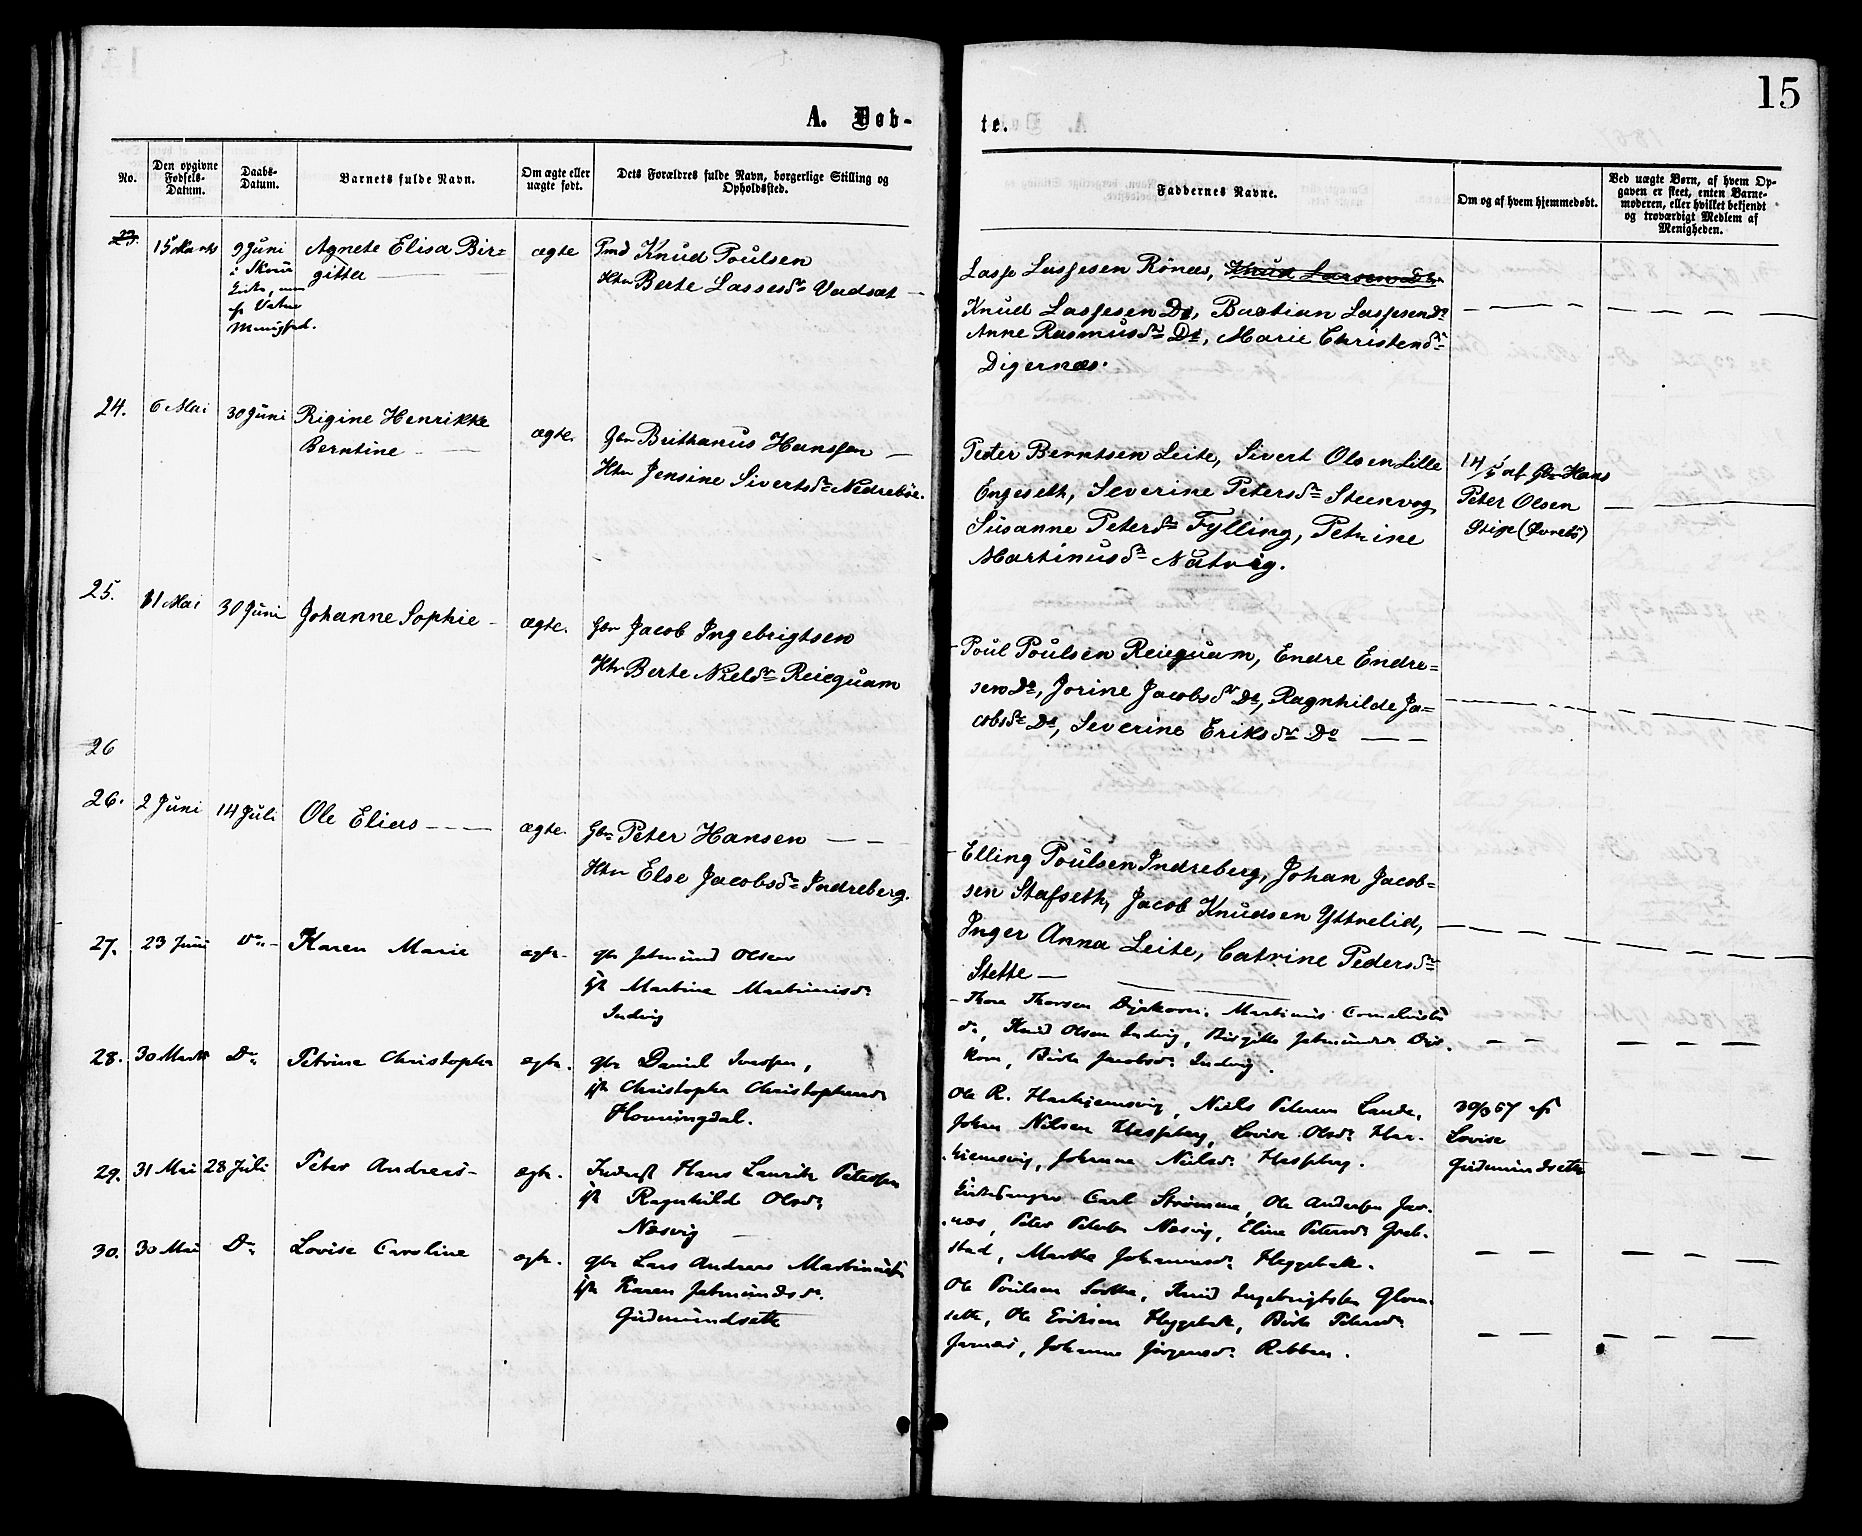 15
A. Døb-
te.
No.
Den opgivne
Fødsels-
Datum.
Daabs-
Datum.
Barnets fulde Navn.
Om ægte eller
uægte født.
Dets Forældres fulde Navn, borgerlige Stilling og
Opholdssted.
Faddernes Navne.
Om og af hvem hjemmedøbt.
Ved uægte Børn, af hvem Op-
gaven er skeet, enten Barne-
moderen, eller hvilket bekjendt
og troværdigt Medlem af
Menigheden.
23.
15 Marts
9 Juni
i Skoue
Kirke,
Vatne
Menighed.
Agnete Elisa Bir=
gitta
ægte
Pmd Knud Poulsen
Htr Berte Lassesdr Vadsæt
Lasse Lassesen Rönæs, Knud Larsen
Knud Lassesen Do, Bastian Lassesen Do
Anne Rasmusdr Do, Marie Christensdr
Digernæs.
24.
6 Mai
30 Juni
Rigine Henrikke
Berntine
ægte
Gbr Brithanus Hanssen
Htr Jensine Sivertsdr Nedrebøe.
Peter Berntsen Leite, Sivert Olsen Lille
Engeseth, Severine Petersdr Steenvog
Susanne Petersdr Fylling, Petrine
Martinusdr Natvig.
14/5 af Hans
Peter Olsen
Stige
25.
11 Mai
30 Juni
Johanne Sophie
ægte.
Gbr Jacob Ingebrigtsen
Htr Berte Nielsdr Reiequam
Poul Poulsen Reiequam, Endre Endre=
sen Do, Jorine Jacobsdr Do, Ragnhilde Ja=
cobsdr Do, Severine Eriksdr Do
26
26.
2 Juni
14 Juli
Ole Elias
ægte.
Gbr Peter Hansen
Htr Else Jacobsdr Indreberg.
Elling Poulsen Indreberg, Johan Jacob=
sen Stafseth, Jacob Knudsen Yttrelid,
Inger Anna Leite, Catrine Pedersdr
Stette
27.
23 Juni
Do
Karen Marie
ægte
gbr Jetmund Olsen
Martine Martinusdr
Indvig
Thore Thorsen Dyrkorn, Martinus Cornelius
dr, Knud Olsen Indvig, Birgitte Jetmundsdr Dyr
korn, Birte Jacobsdr Indvig.
28.
30 Marts
Do
Petrine Christopha
ægte.
gbr Daniel Ivarssen,
Christopha Christophersdr
Hovningdal.
Ole R. Harkjemsvig, Niels Petersen Lande,
Johan Nilsen Hessberg, Lovise Olsdr Har-
kjemsvig, Johanne Nielsdr Hessberg.
30/3 67 af
Lovise
Gudmundsette
29.
31 Mai
28 Juli
Peter Andreas
ægte.
Inderst Hans Laurits Peterssen
Ragnhild Olsdr
Næsvig
Kirkesanger Carl Strømme, Ole Anderssen Jar-
næs, Peter Petersen Næsvig, Eline Petersdr Græb-
stad, Marthe Johannesdr Heggebak.
30.
30 Mai
Do
Lovise Caroline
ægte.
gbr Lars Andreas Martinus
Karen Jetmundsdr
Gudmundsette
Ole Poulsen Sætre, Knud Ingebrigtsen Glom-
sette, Ole Eriksen Heggebak, Birte Petersdr
Jarnæs, Johanne Jørgensdr Rebben.